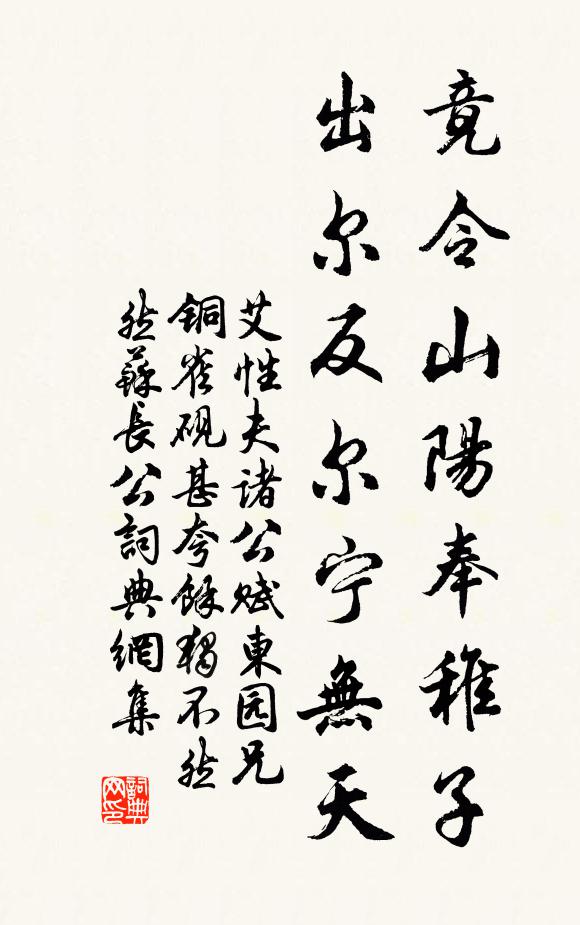 竟令山陽奉稚子
出尔反尔宁無天
艾性夫諸公赋東园兄
铜雀砚甚夸餘獨不然
然蘇長公詞典網集
詞典网印